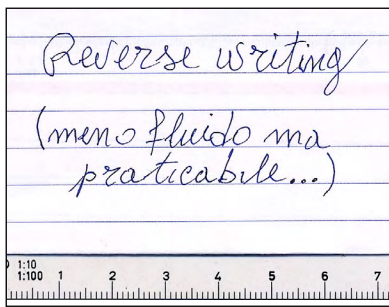 Reverse writing
(meno fluido ma
praticabile...)
1:10
1:100 1 2 3 4 5 6 7